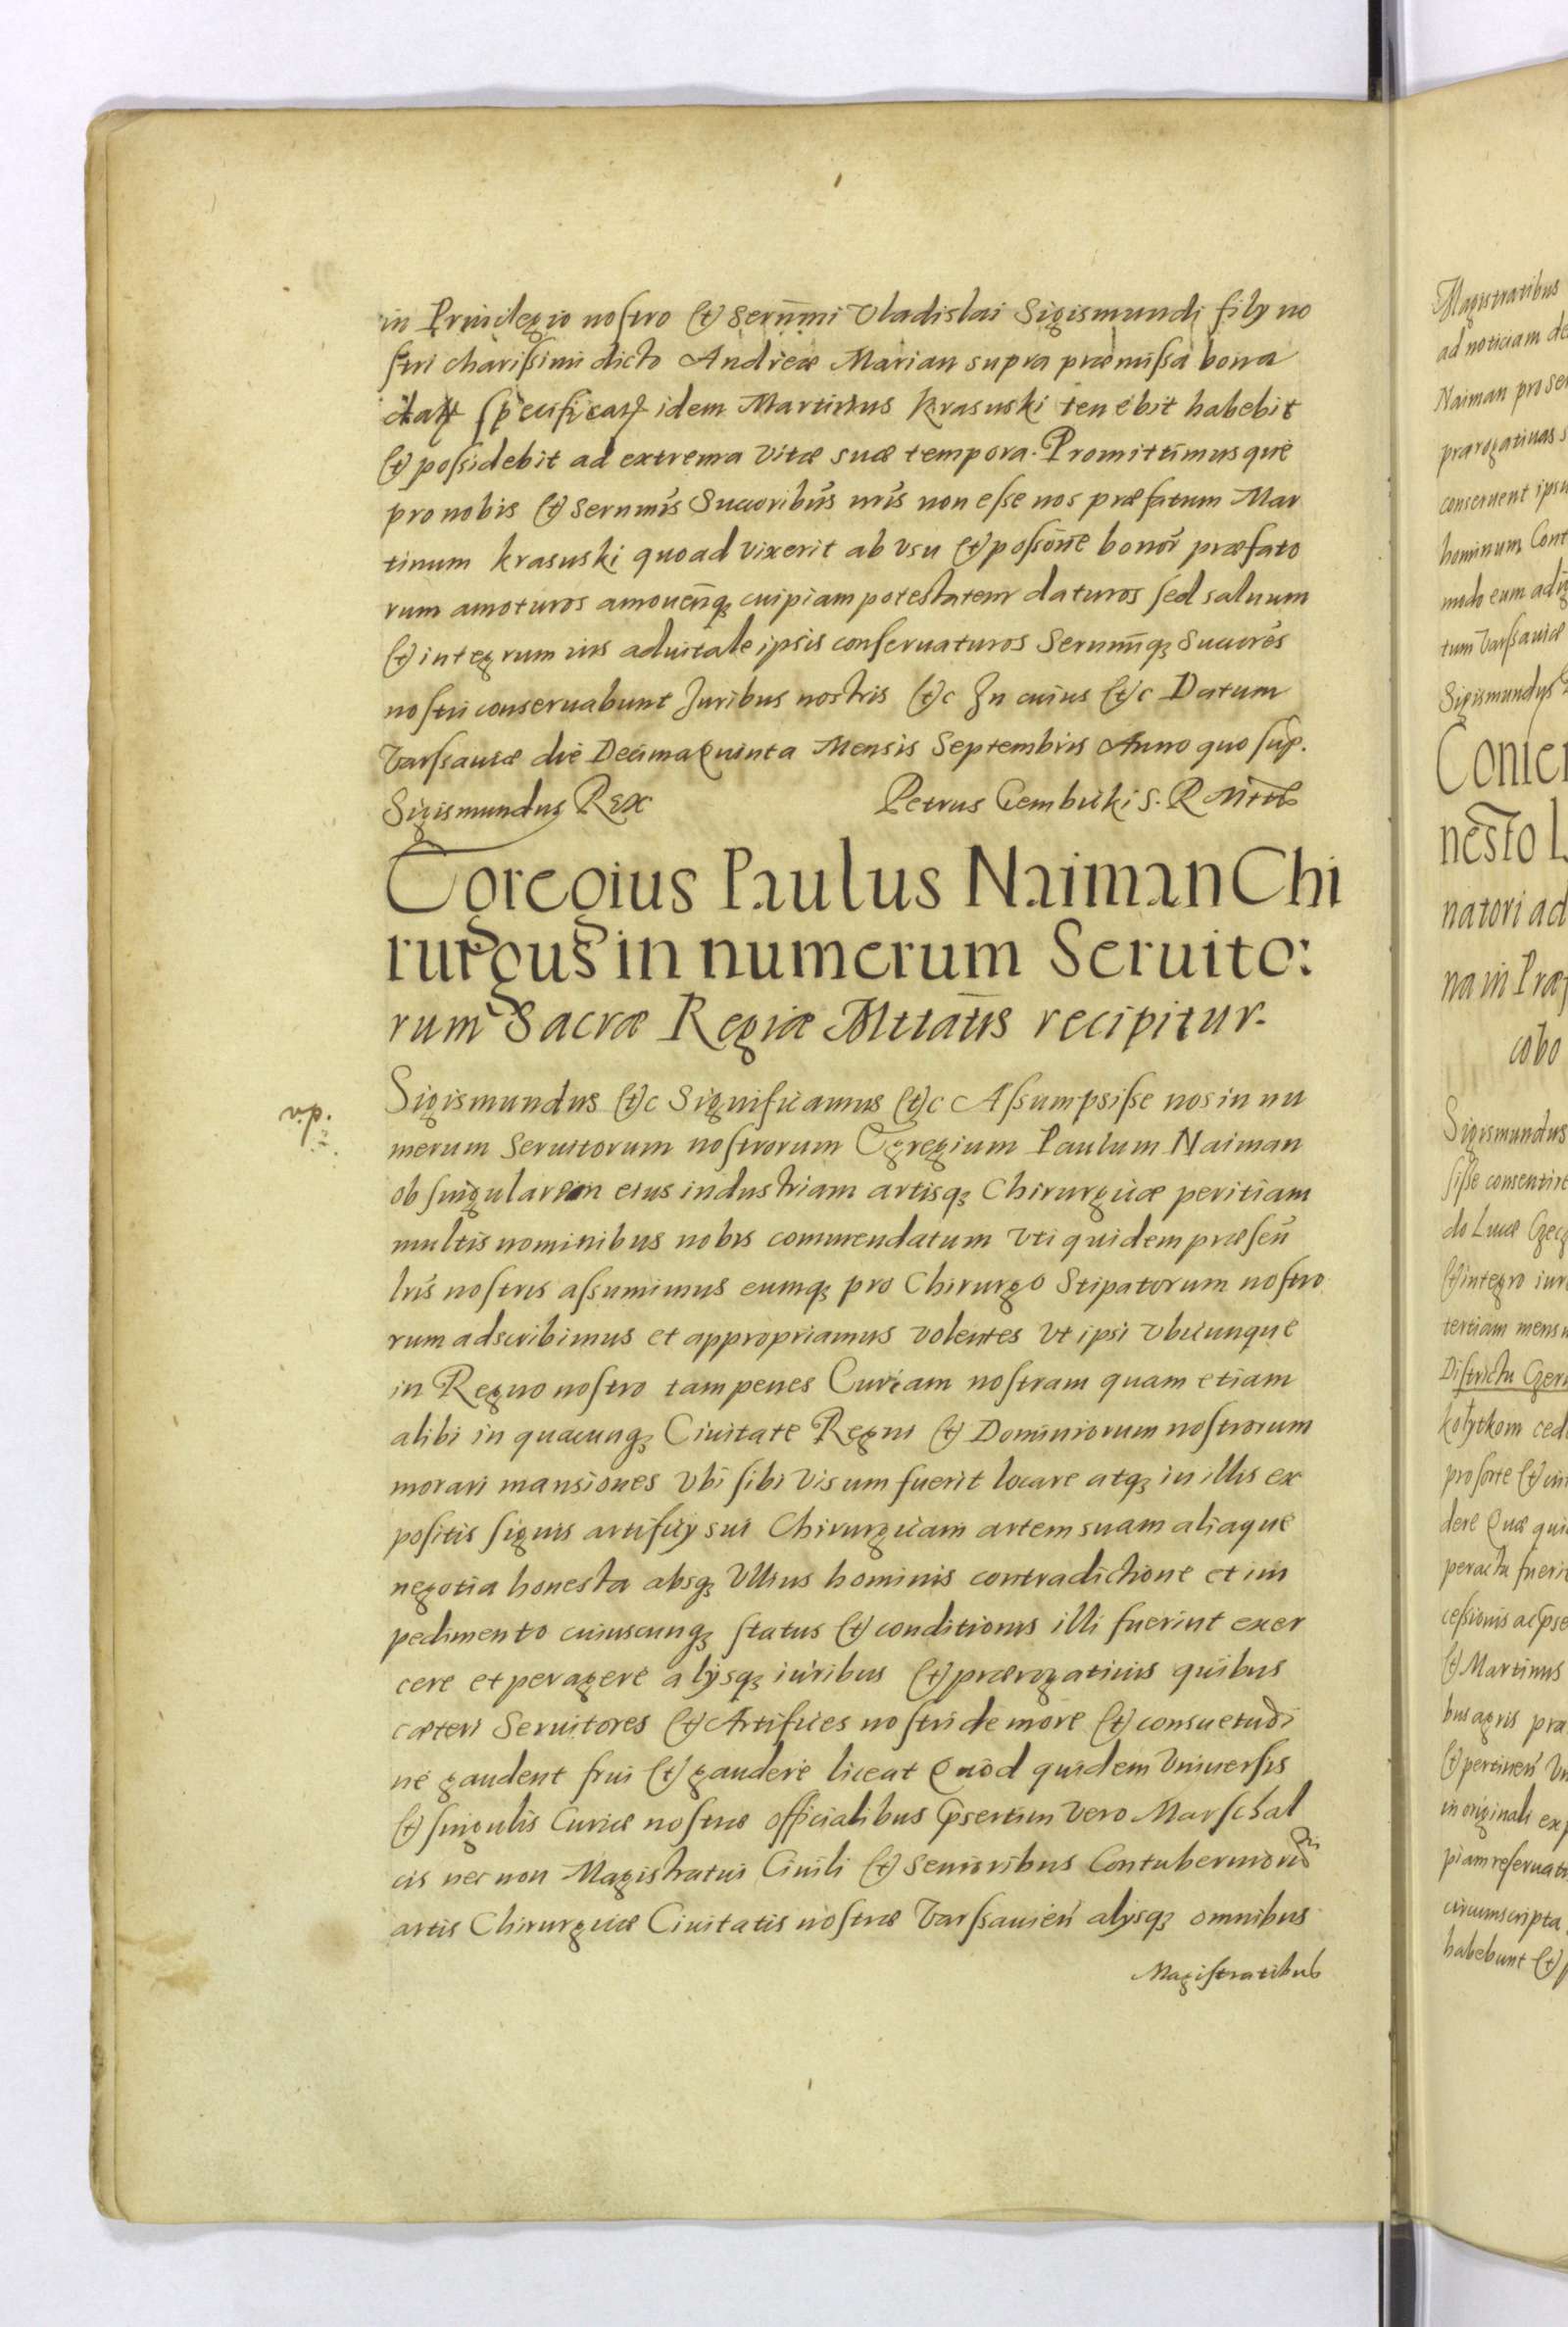 in Priuilegio nostro (et) Seren̄mi Vladislai Sigismundi filij no
stri charissimi dicto Andreæ Marian supra præmissa bona
idem Martinus Krasuski tenebit habebit
(et) possidebit ad extrema vitæ suæ tempora. Promittimusque
pro nobis (et) Sernmis Succoribus nris non esse nos præfatum Mar
tinum Krasuski quoad vixerit ab vsu (et) possōne bonor præfato
rum amoturos amouendq; cuipiam potestatem daturos sed saluum
(et) integrum ius aduitale ipsis conseruaturos Sernmq; Succores
nostri conseruabunt Juribus nostris (et)c In cuius (et)c Datum
Varssauiæ die Decima Quinta Mensis Septembris Anno quo sup.
Sigismundus Rex Petrus Gembicki S. R Mttis
Egregius Paulus Naiman Chi
rurgus in numerum Seruito:
rum Sacræ Regiæ Mttatis recipitur.
v.p.
Sigismundus (et)c Significamus (et)c Assumpsisse nos in nu
merum Seruitorum nostrorum Egregium Paulum Naiman
ob singularem eius industriam artisq; Chirurgicæ peritiam
multis nominibus nobis commendatum vti quidem præsen
tris nostris assumimus eumq; pro Chirurgo Stipatorum nostro
rum adscribimus et appropriamus volentes vt ipsi vbicunque
in Regno nostro tam penes Curiam nostram quam etiam
alibi in quacunq; Ciuitate Regni (et) Dominiorum nostrorum
morari mansiones vbi sibi visum fuerit locare atq; in illis ex
positis signis artificij sui Chirurgicam artem suam aliaque
negotia honesta absq; vllius hominis contradictione et im
pedimento cuiuscunq; status (et) conditionis illi fuerint exer
cere et peragere alijsq; iuribus (et) prærogatiuis quibus
cæteri Seruitores (et) Artifices nostri de more (et) consuetudi
ne gaudent frui (et) gaudere liceat Quod quidem Vniuersis
(et) singulis Curiæ nostræ officialibus psertim vero Marschal
cis nec non Magistratui Ciuili (et) Senioribus Contuberniorū
artis Chirurgicæ Ciuitatis nostræ Varssauien alijsq; omnibus
Magistratibus
Magistratibus
ad noticiam de
Naiman pro se
prærogatiuas s
conseruent ipsu
hominum Cont
modo eum adig
tum Varssauiæ
Sigismundus
nesto L
natori ad
na in Præ
cobo
Sigismundus
sisse consentire
do Lucæ
(et) integro iur
tertiam mens
Districtu Czer
ced
pro sorte (et)
dere Quæ qui
peracta fueri
cessionis ac
(et) Martinus
bus agris pra
(et) pertinen Vn
in originali ex
piam reseruat
circumscripta
habebunt (et)